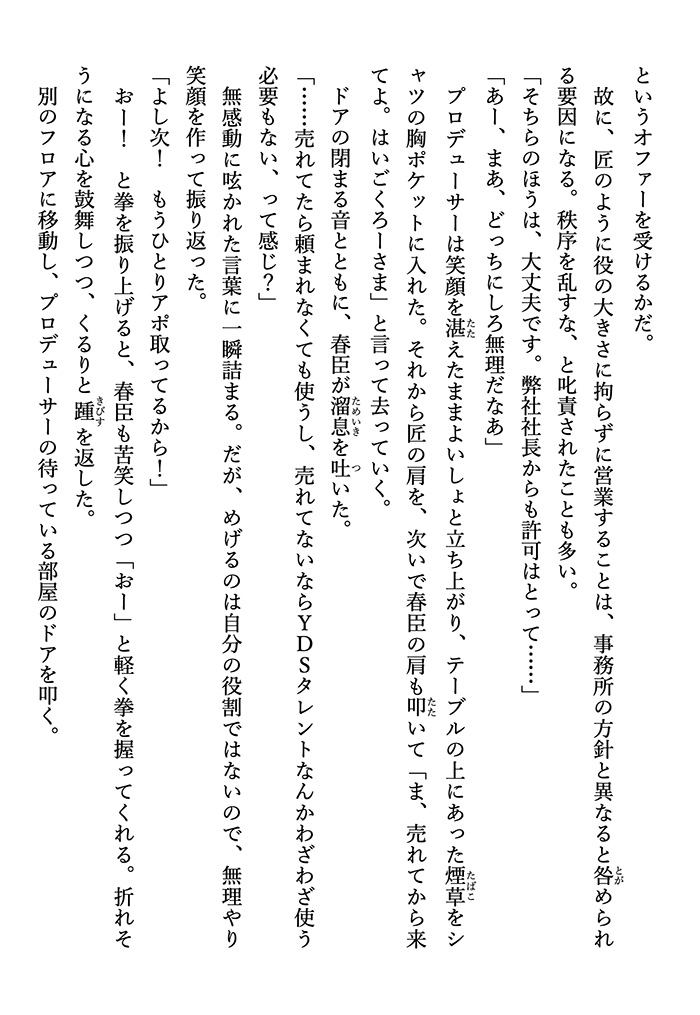 というオファーを受けるかだ。
　故に、匠のように役の大きさに拘らずに営業することは、事務所の方針と異なると咎められ
る要因になる。秩序を乱すな、と叱責されたことも多い。
「そちらのほうは、大丈夫です。弊社社長からも許可はとって……」
「あー、まあ、どっちにしろ無理だなあ」
　プロデューサーは笑顔を湛えたままよいしょと立ち上がり、テーブルの上にあった煙草をシ
ャツの胸ポケットに入れた。それから匠の肩を、次いで春臣の肩も叩いて「ま、売れてから来
てよ。はいごくろーさま」と言って去っていく。
　ドアの閉まる音とともに、春臣が溜息を吐いた。
「……売れてたら頼まれなくても使うし、売れてないならＹＤＳタレントなんかわざわざ使う
必要もない、って感じ？」
　無感動に呟かれた言葉に一瞬詰まる。だが、めげるのは自分の役割ではないので、無理やり
笑顔を作って振り返った。
「よし次！　もうひとりアポ取ってるから！」
　おー！　と拳を振り上げると、春臣も苦笑しつつ「おー」と軽く拳を握ってくれる。折れそ
うになる心を鼓舞しつつ、くるりと踵を返した。
　別のフロアに移動し、プロデューサーの待っている部屋のドアを叩く。